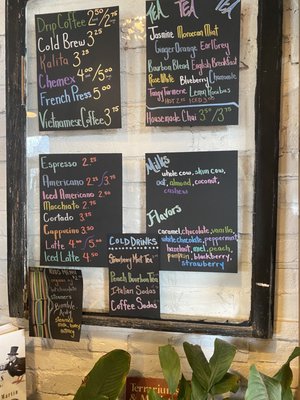 Drip Coffee 2.50/2.75
Cold Brew 3.25
Kalita 3.25
Chemex 4.00/5.00
French Press 5.00
Vietnamese Coffee 3.75
TEA TEA TEA
Jasmine Moroccan Mint
Ginger Orange Earl Grey
Bourbon Blend English Breakfast
Rose White Blueberry Chamomile
Tangy Turmeric Lemon Rooibos
HOT 2.75 ICED 3.00
Housemade Chai 3.25/3.75
Espresso 2.25
Americano 2.75/3.25
Iced Americano 2.75
Macchiato 2.75
Cortado 3.25
Cappuccino 3.50
Latte 4.00/5.00
Iced Latte 4.50
Milks
whole cow, skim cow,
oat, almond, coconut,
cashew
Flavors
caramel, chocolate, vanilla,
white chocolate, peppermint,
hazelnut, mint, peach,
pumpkin, blackberry,
strawberry
COLD DRINKS
Strawberry Mint Tea
Peach Bourbon Tea
Italian Sodas
Coffee Sodas
KIDS MENU
chocolate
steamers
milk
Martin
Terrariums